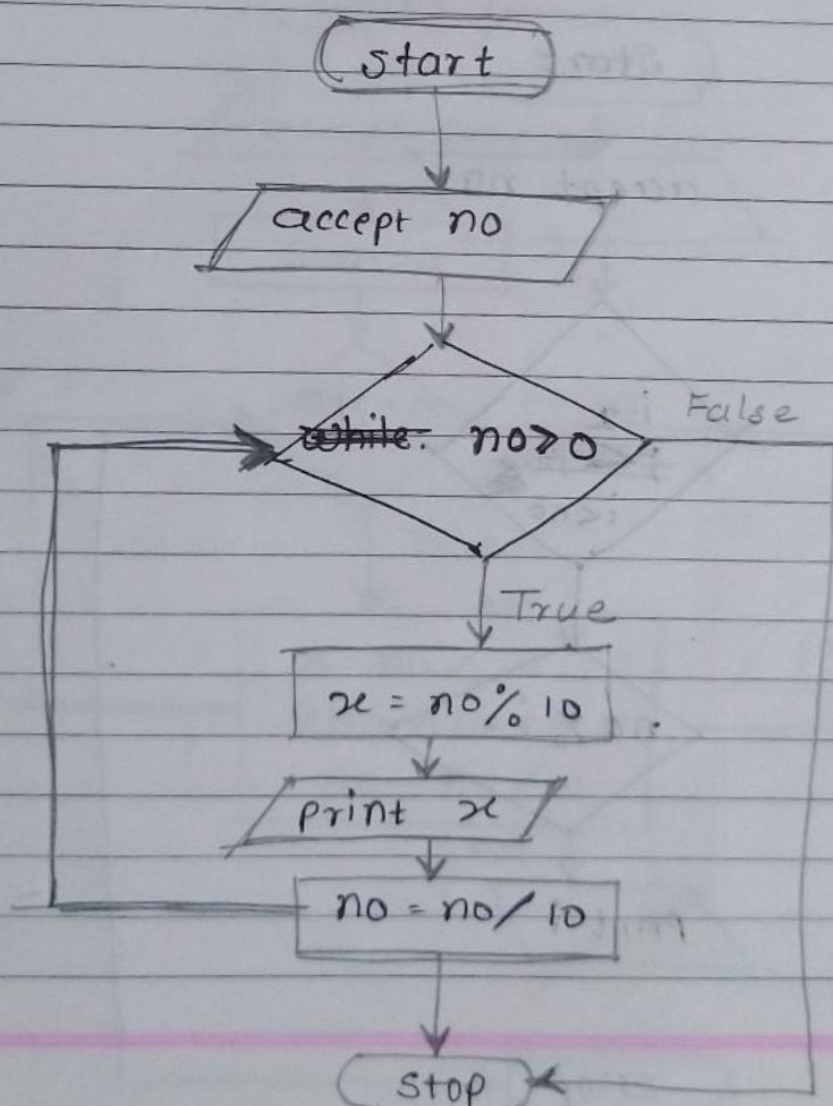 start
accept no
while: no>0
False
True
x = no% 10
print x
no = no/ 10
stop